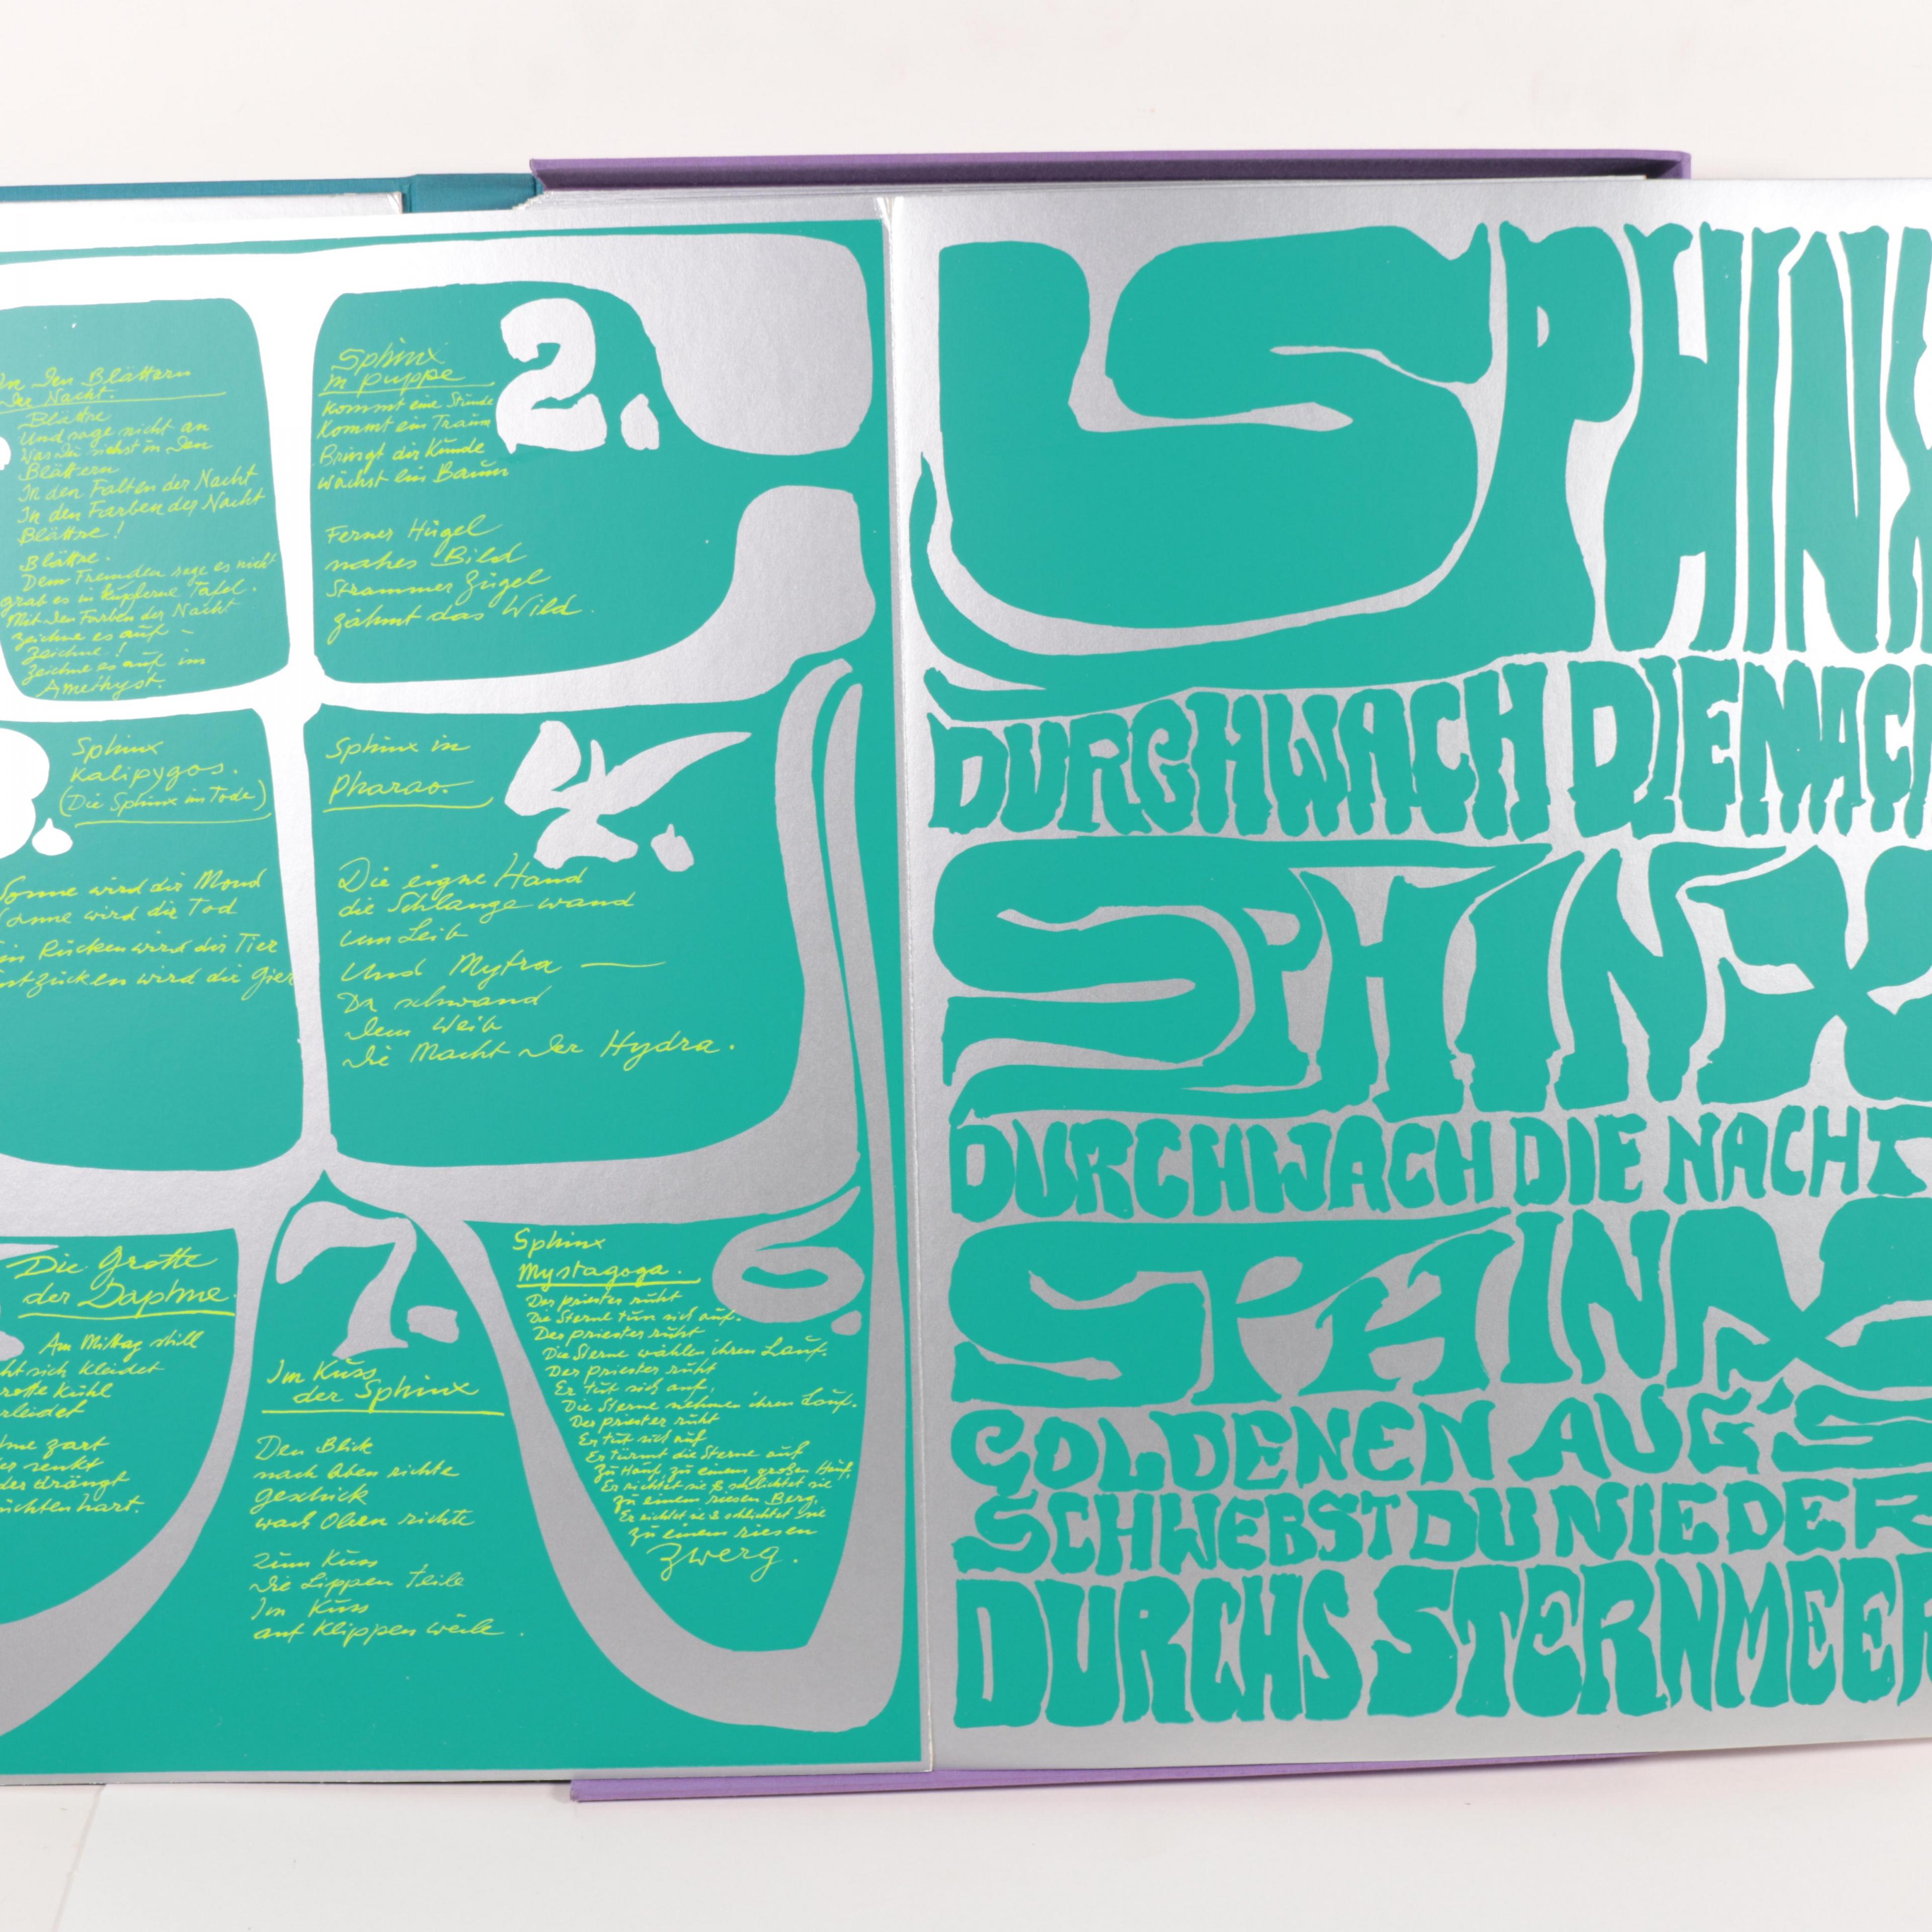 In den Blättern
der Nacht.
Blättre
Und sage nicht an
Was du siehst in den
Blättern
In den Falten der Nacht
In den Farben der Nacht
Blättre!
Blättre.
Dem Fremden sage es nicht
grab es in kupferne Tafel.
Mit den Farben der Nacht
zeichne es auf –
zeichne!
zeichne es auf im
Amethyst.
2.
Sphinx
in puppe
Kommt eine Stunde
Kommt ein Traum
Bringt dir Kunde
wächst ein Baum
Ferner Hügel
nahes Bild
Strammer Zügel
zähmt das Wild.
3.
Sphinx
Kalipygos.
(Die Sphinx im Tode)
Sonne wird dir Mond
Sonne wird dir Tod
Rücken wird dir Tier
wird dir Gier
4.
Sphinx in
Pharao.
Die eigne Hand
die Schlange wand
um Leib
Und Mytra —
Da schwand
dem Weib
die Macht der Hydra.
Die Grotte
der Daphne.
Am Mittag still
sich kleidet
kühl
zart
senkt
drängt
hart.
7.
Im Kuss
der Sphinx
Den Blick
nach oben richte
geschick
nach Oben richte
Zum Kuss
die Lippen teile
Im Kuss
auf Klippen weile.
6.
Sphinx
Mystagoga.
Der priester ruht
Die Sterne tun sich auf.
Der priester ruht
Die Sterne wählen ihren Lauf.
Der priester ruht
Er tut sich auf,
Die Sterne nehmen ihren Lauf.
Der priester ruht
Er tut sich auf
Er türmt die Sterne auf
zu Hauf, zu einem großen Hauf,
Er richtet sie & schlichtet sie
zu einem riesen Berg,
Er richtet sie & schlichtet sie
zu einem riesen
Zwerg.
SPHINX
DURCHWACH DIE NACH
SPHINX
DURCHWACH DIE NACHT
SPHINX
GOLDENEN AUG'S
SCHWEBST DU NIEDER
DURCHS STERNMEER